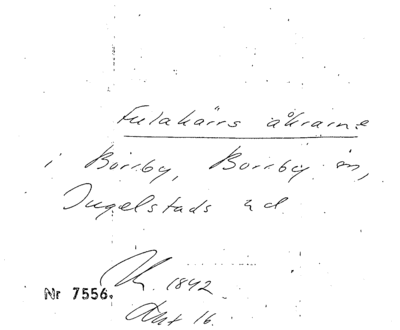 Fulakärrs åkrarne
i Borrby, Borrby sn,
Ingelstads hd
1842
Nr 7556.
Akt 16.